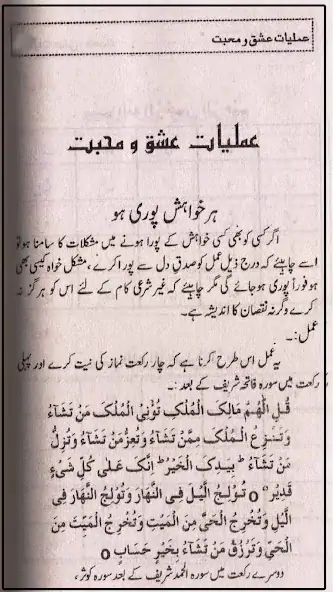 عملیات عشق و محبت
عملیات عشق و محبت
ہر خواہش پوری ہو
اگر کسی کو بھی کسی خواہش کے پورا ہونے میں مشکلات کا سامنا ہو تو
اسے چاہیئے کہ درج ذیل عمل کو صدق دل سے پورا کرے، مشکل خواہ کیسی بھی
ہو فوراً پوری ہو جائے گی مگر چاہیئے کہ غیر شرعی کام کے لئے اس کو ہرگز نہ
کرے وگرنہ نقصان کا اندیشہ ہے۔
عمل:۔
یہ عمل اس طرح کرنا ہے کہ چار رکعت نماز کی نیت کرے اور پہلی
رکعت میں سورہ فاتحہ شریف کے بعد :۔
قُلِ اللّٰهُمَّ مَالِكَ الْمُلْكِ تُؤْتِی الْمُلْكَ مَنْ تَشَآءُ
وَتَنْزِعُ الْمُلْكَ مِمَّنْ تَشَآءُ وَتُعِزُّ مَنْ تَشَآءُ وَتُذِلُّ
مَنْ تَشَآءُ ؕ بِیَدِكَ الْخَیْرُ ؕ اِنَّكَ عَلٰی كُلِّ شَیْءٍ
قَدِیْرٌ o تُوْلِجُ الَّیْلَ فِی النَّهَارِ وَتُوْلِجُ النَّهَارَ فِی
الَّیْلِ وَتُخْرِجُ الْحَیَّ مِنَ الْمَیِّتِ وَتُخْرِجُ الْمَیِّتَ مِنَ
الْحَیِّ وَتَرْزُقُ مَنْ تَشَآءُ بِغَیْرِ حِسَابٍ o
دوسرے رکعت میں سورہ الحمد شریف کے بعد سورہ کوثر،